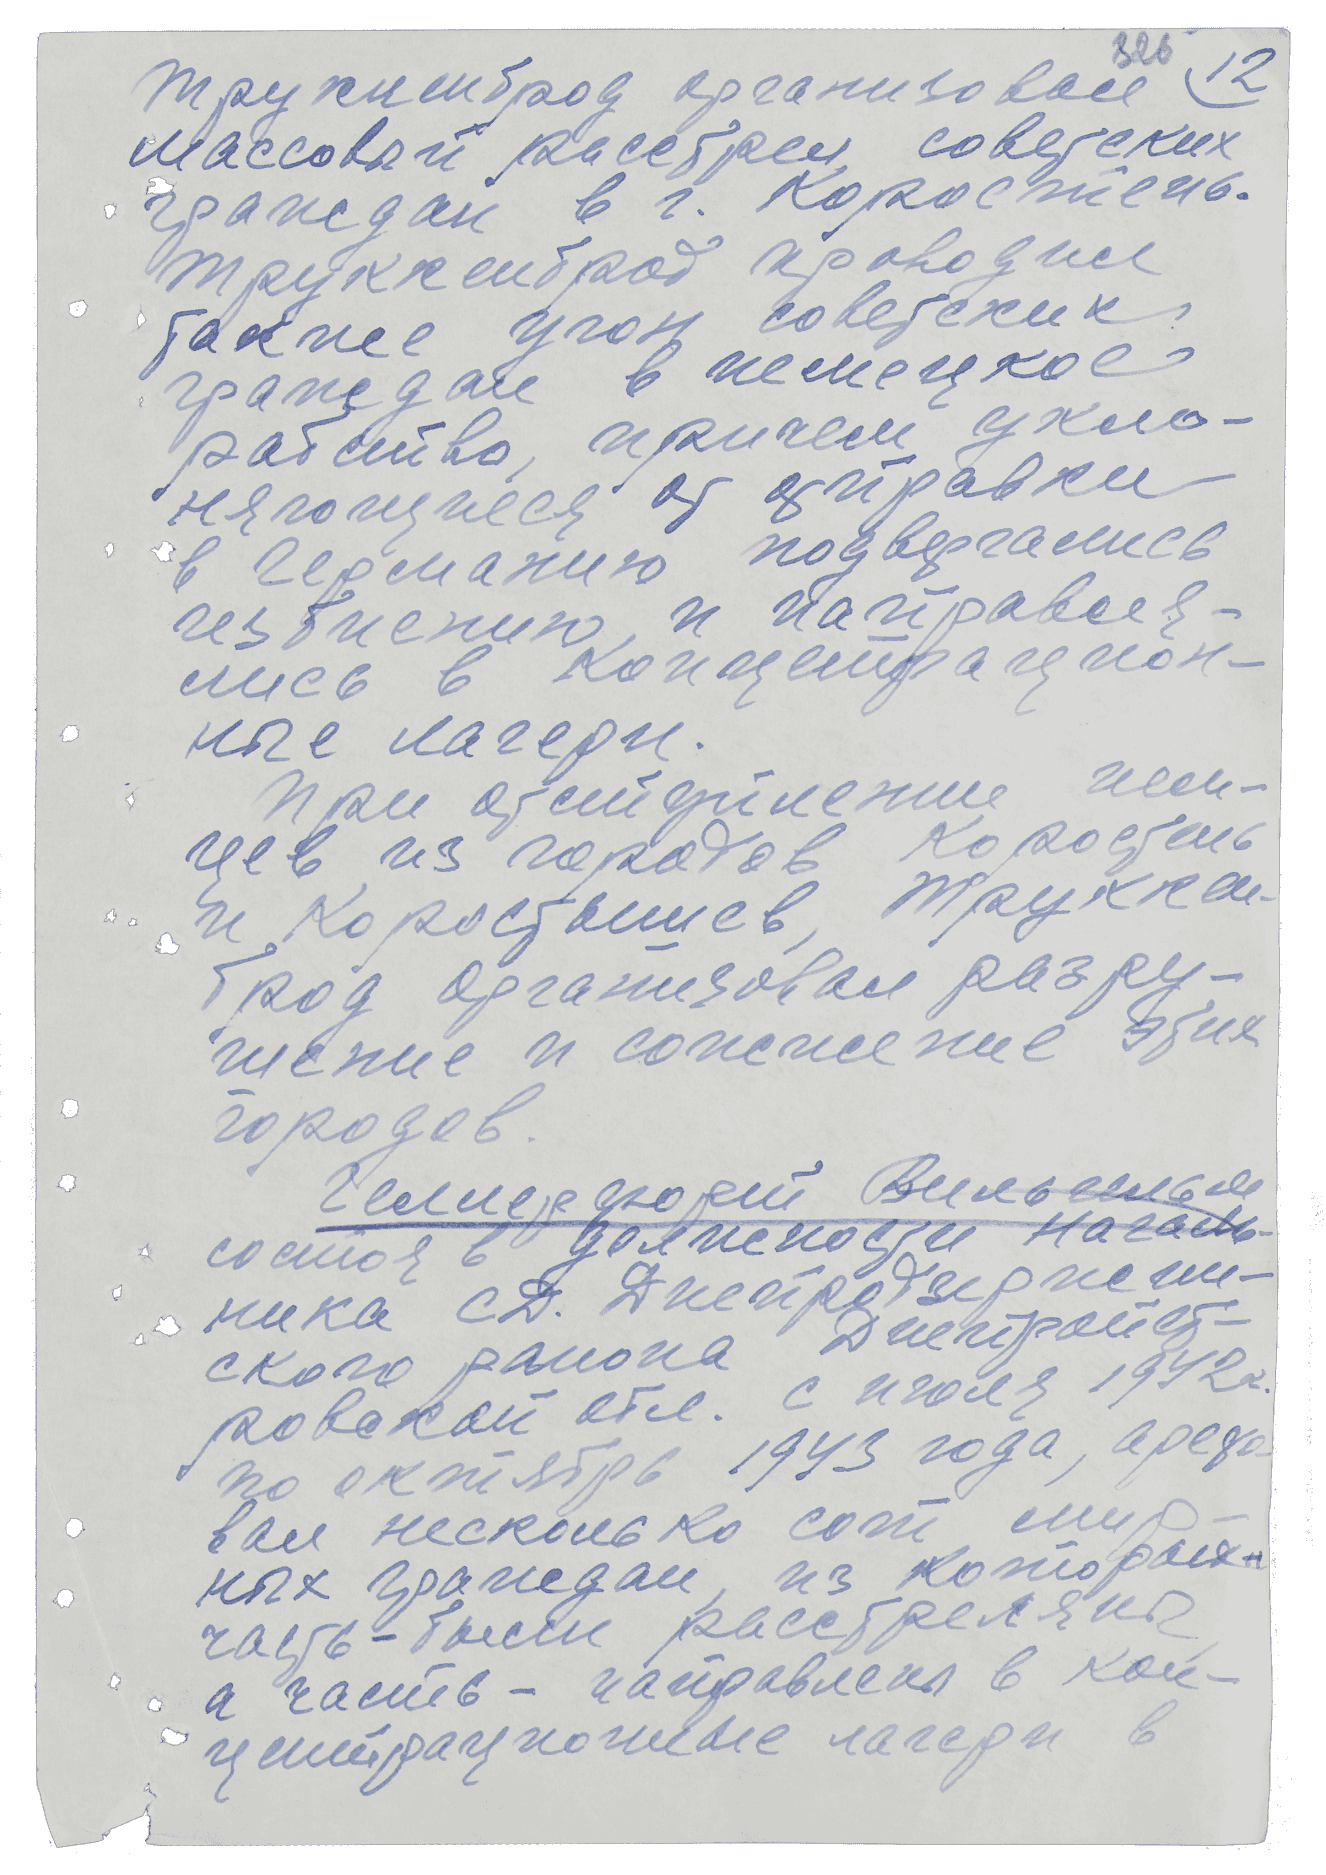 326 12
Труккенброд организовал
массовый расстрел советских
граждан в г. Коростень.
Труккенброд проводил
также угон советских
граждан в немецкое
рабство, причем укло-
няющиеся от отправки
в Германию подвергались
избиению и направля-
лись в концентрацион-
ные лагери.
При отступлении нем-
цев из городов Коростень
и Коростышев, Труккен-
брод организовал разру-
шение и сожжение этих
городов.
Вильгельм
состоя в должности началь-
ника СД. Днепродзержин-
ского района Днепропет-
ровской обл. с июля 1942г.
по октябрь 1943 года, аресто-
вал несколько сот мир-
ных граждан, из которых
часть - были расстреляны,
а часть - направлены в кон-
центрационные лагери в